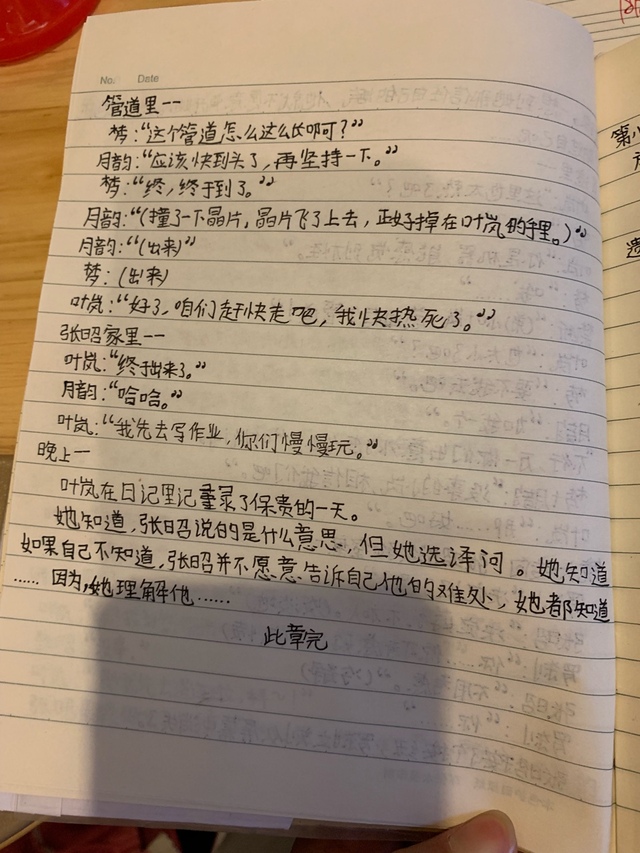 No. Date
管道里——
梦:“这个管道怎么这么长啊?”
月韵:“应该快到头了,再坚持一下。”
梦:“终,终于到了。”
月韵:“(撞了一下晶片,晶片飞了上去,正好掉在叶岚的手里。)”
月韵:“(出来)”
梦:(出来)
叶岚:“好了,咱们赶快走吧,我快热死了。”
张昭家里——
叶岚:“终于出来了。”
月韵:“哈哈。”
叶岚:“我先去写作业,你们慢慢玩。”
晚上——
叶岚在日记里记录了保贵的一天。
她知道,张昭说的是什么意思,但她选译问。她知道
如果自己不知道,张昭并不愿意告诉自己他的难处,她都知道
……因为,她理解他……
此章完